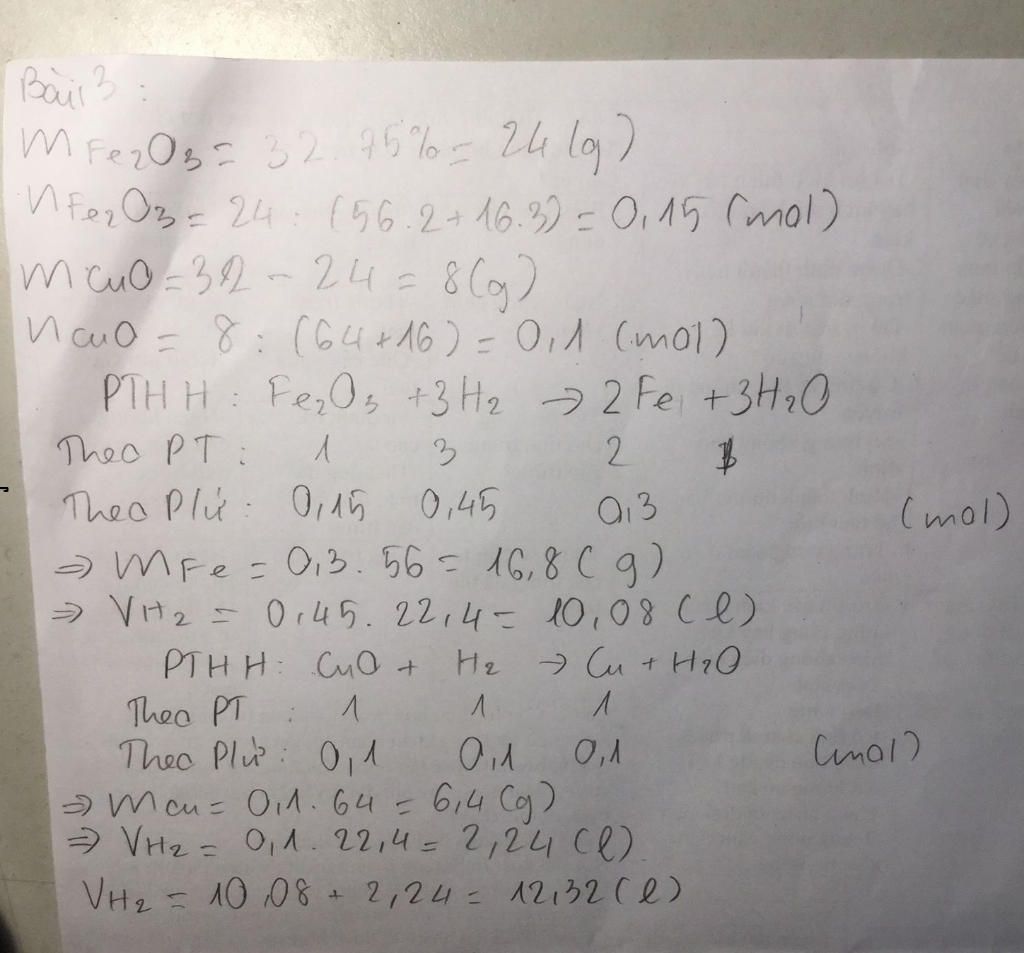 Bài 3 :
mFe2O3 = 32 . 75% = 24 (g)
nFe2O3 = 24 : (56.2+16.3) = 0,15 (mol)
mCuO = 32 - 24 = 8 (g)
nCuO = 8 : (64+16) = 0,1 (mol)
PTHH : Fe2O3 +3H2 → 2Fe +3H2O
Theo PT : 1 3 2
Theo P/ư : 0,15 0,45 0,3 (mol)
⇒ mFe = 0,3 . 56 = 16,8 (g)
⇒ VH2 = 0,45 . 22,4 = 10,08 (l)
PTHH : CuO + H2 → Cu + H2O
Theo PT : 1 1 1
Theo P/ư : 0,1 0,1 0,1 (mol)
⇒ mCu = 0,1 . 64 = 6,4 (g)
⇒ VH2 = 0,1 . 22,4 = 2,24 (l)
VH2 = 10,08 + 2,24 = 12,32 (l)